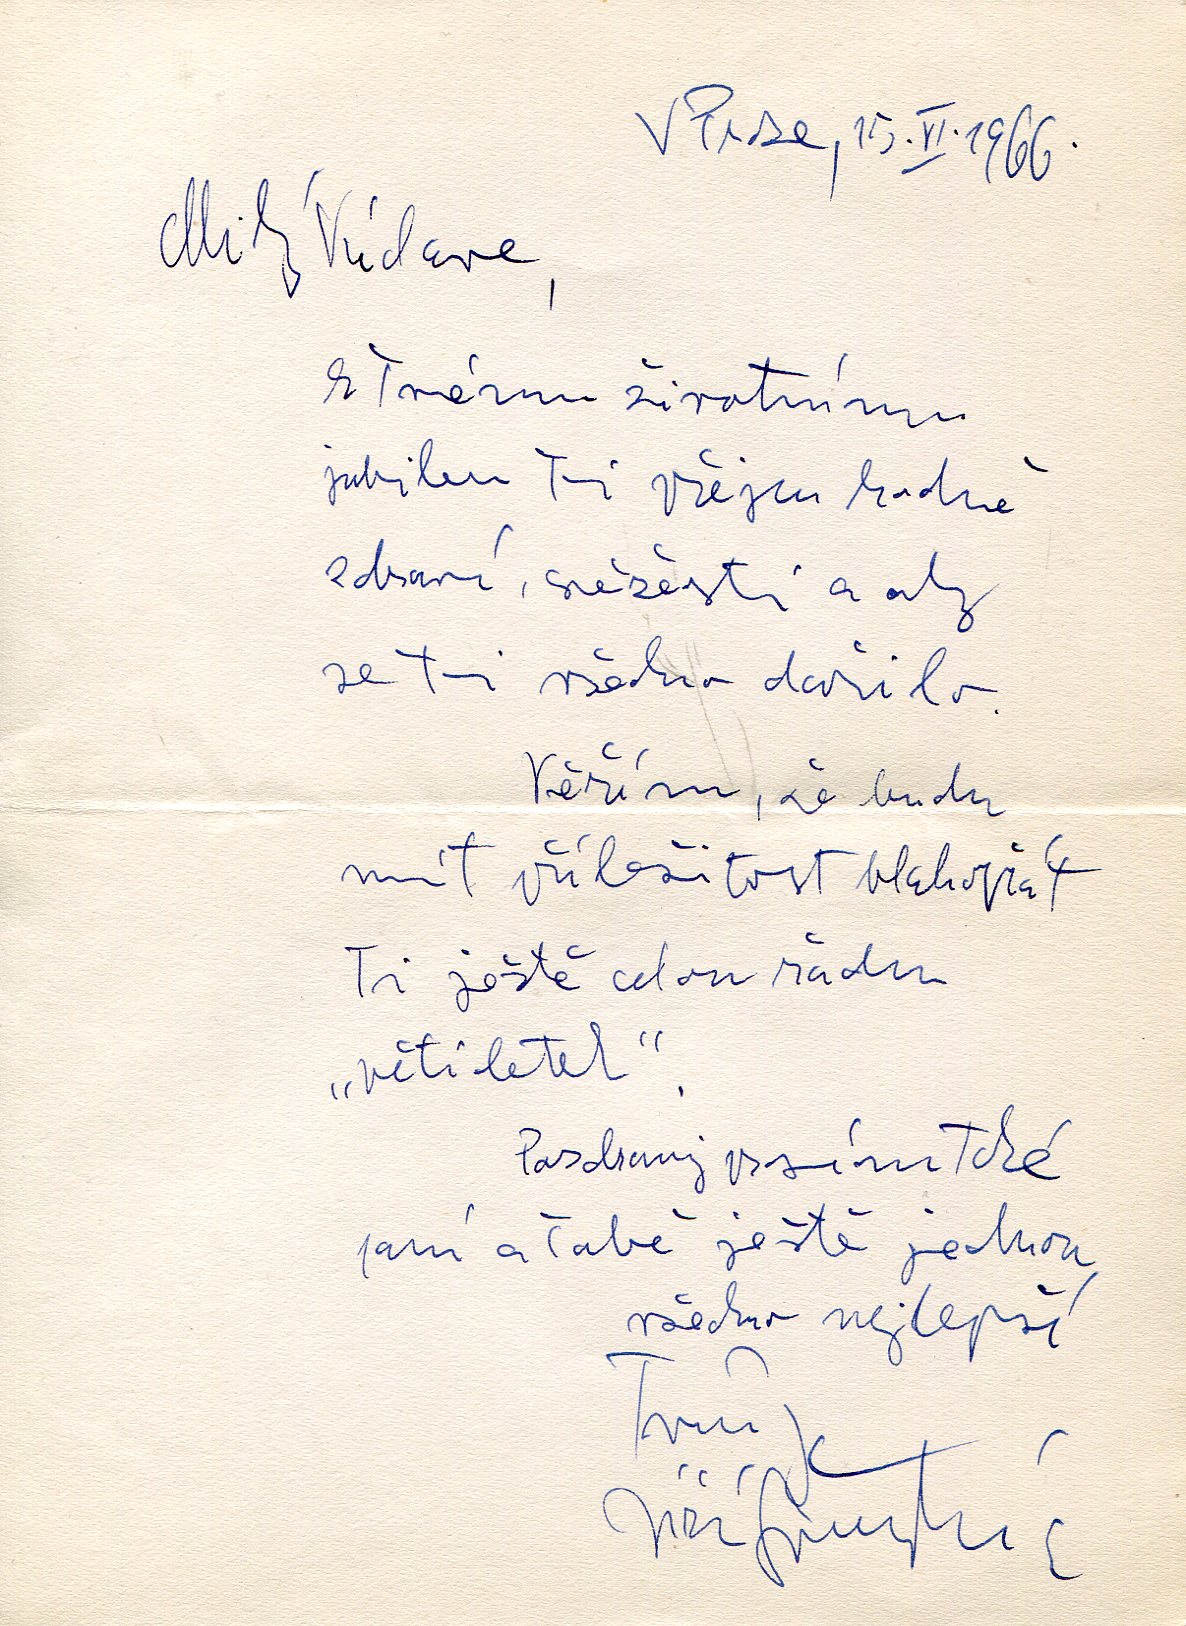 V Praze, 15. VI. 1966.
Milý Václave,
k Tvému životnímu
jubileu Ti přeju hodně
zdraví, štěstí a aby
se Ti všechno dařilo.
Věřím, že budu
mít příležitost blahopřát
Ti ještě celou řádku
„pětiletek“.
Pozdravuj
paní a Tobě ještě jednou
všechno nejlepší
Tvůj
Jiří